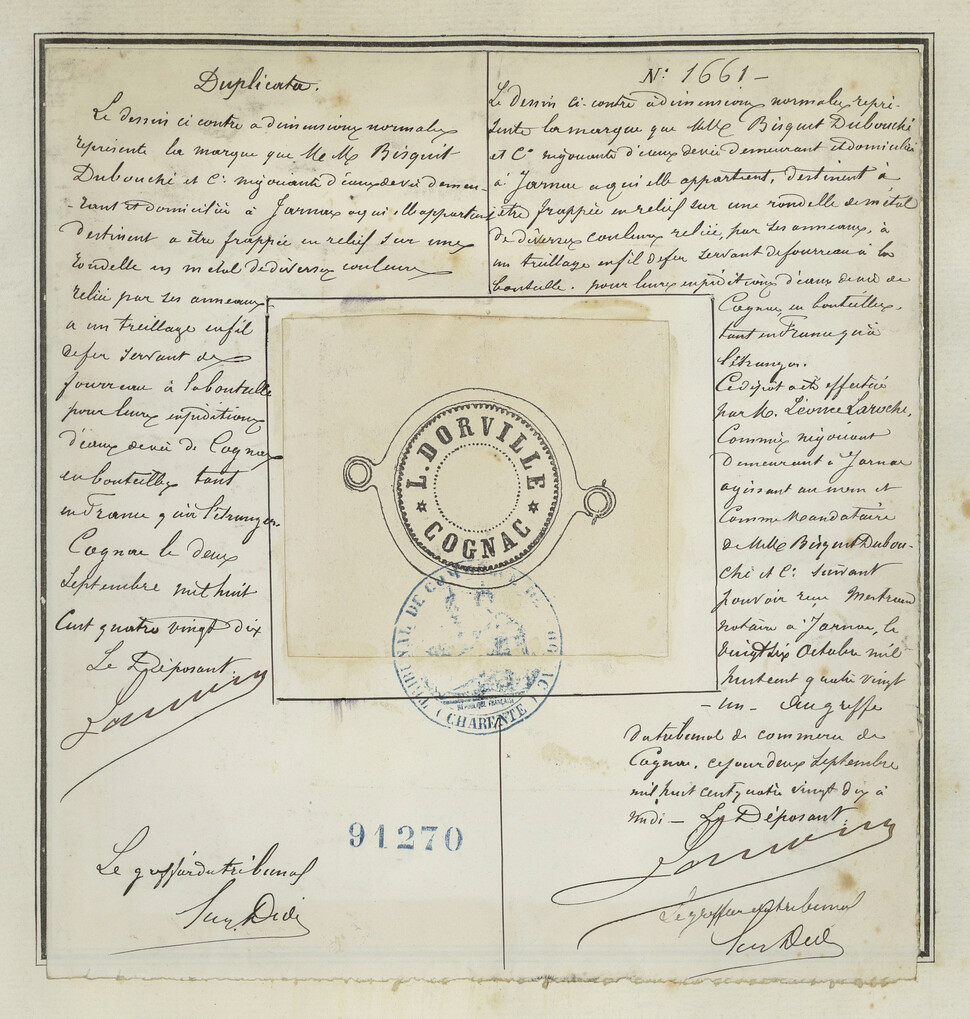 Duplicata.
Le dessin ci contre a dimensions normales
représente la marque que M M Bisquit
Dubouché et Cie négociants d'eaux de vie demeu-
-rant et domiciliés à Jarnac a qui elle appartient,
destinent a être frappée en relief sur une
rondelle en métal de diverses couleurs
reliée par ses anneaux
a un treillage en fil
de fer servant de
fourreau à la bouteille
pour leurs expéditions
d'eaux de vie de Cognac
en bouteilles tant
en France qu'à l'étranger.
Cognac le deux
Septembre mil huit
Cent quatre vingt dix
Le Déposant.
Le greffier du tribunal
N° 1661 -
Le dessin ci-contre à dimensions normales repré-
sente la marque que MM Bisquit Dubouché
et Cie négociants d'eaux de vie demeurant et domiciliés
à Jarnac a qui elle appartient, destinent à
être frappée en relief sur une rondelle de métal
de diverses couleurs reliée, par ses anneaux, à
un treillage en fil de fer servant de fourreau à la
bouteille. pour leurs expéditions d'eaux de vie de
Cognac, en bouteilles,
tant en France qu'à
l'étranger.
Ce dépôt a été effectué
par M. Léonce Laroche,
Commis négociant
demeurant à Jarnac
agissant au nom et
Comme Mandataire
de MM Bisquit Dubou-
ché et Cie suivant
pouvoir reçu
notaire a Jarnac, le
vingt six Octobre mil
huit cent quatre vingt
- un - Au greffe
du tribunal de commerce de
Cognac, ce jour deux Septembre
mil huit cent quatre vingt dix à
midi - Le Déposant.
Le greffier du tribunal
L. DORVILLE
COGNAC
TRIBUNAL DE COMMERCE DE COGNAC
RÉPUBLIQUE FRANÇAISE
(CHARENTE)
91270